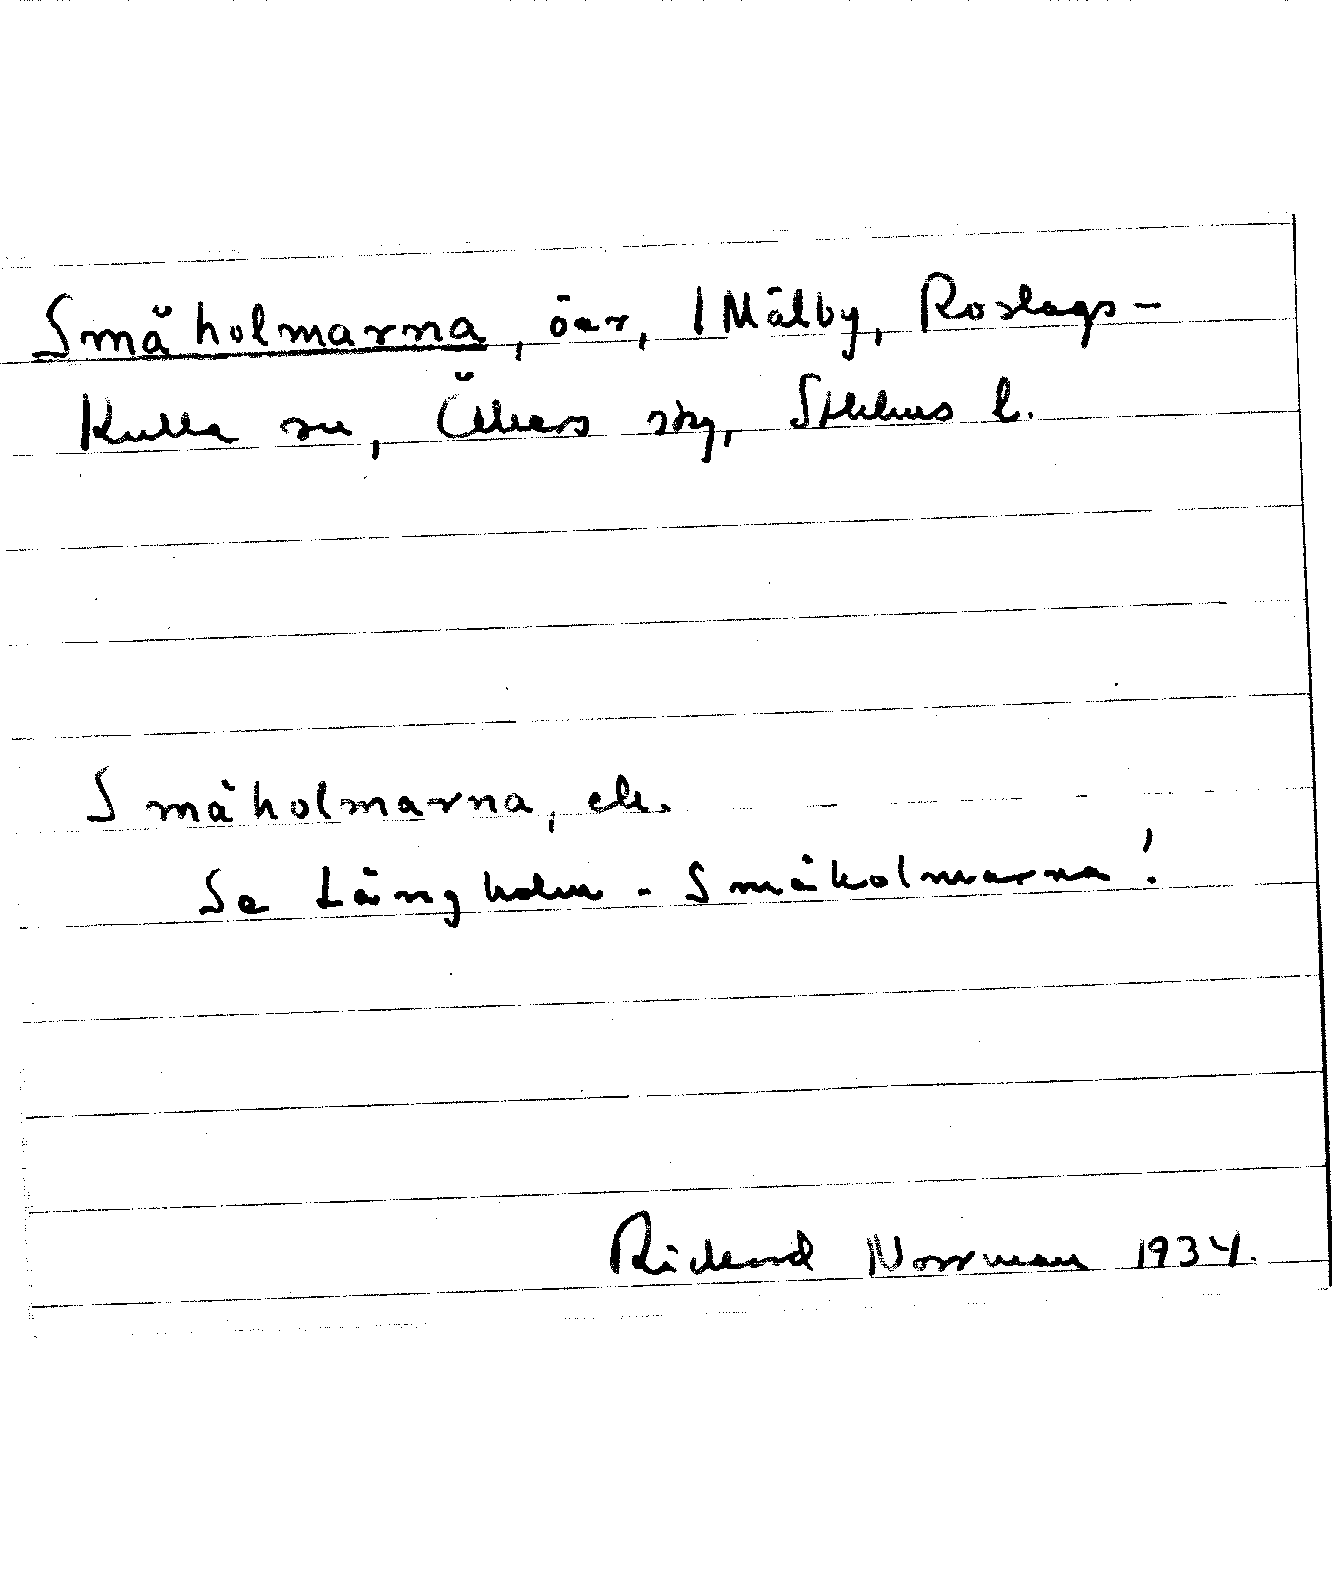 Småholmarna, öar, 1 Mälby, Roslags-
Kulla sn, Åkers skg, Sthlms l.
Småholmarna, ell.
Se Långholm - Småholmarna!
Rickard Norrman 1934.